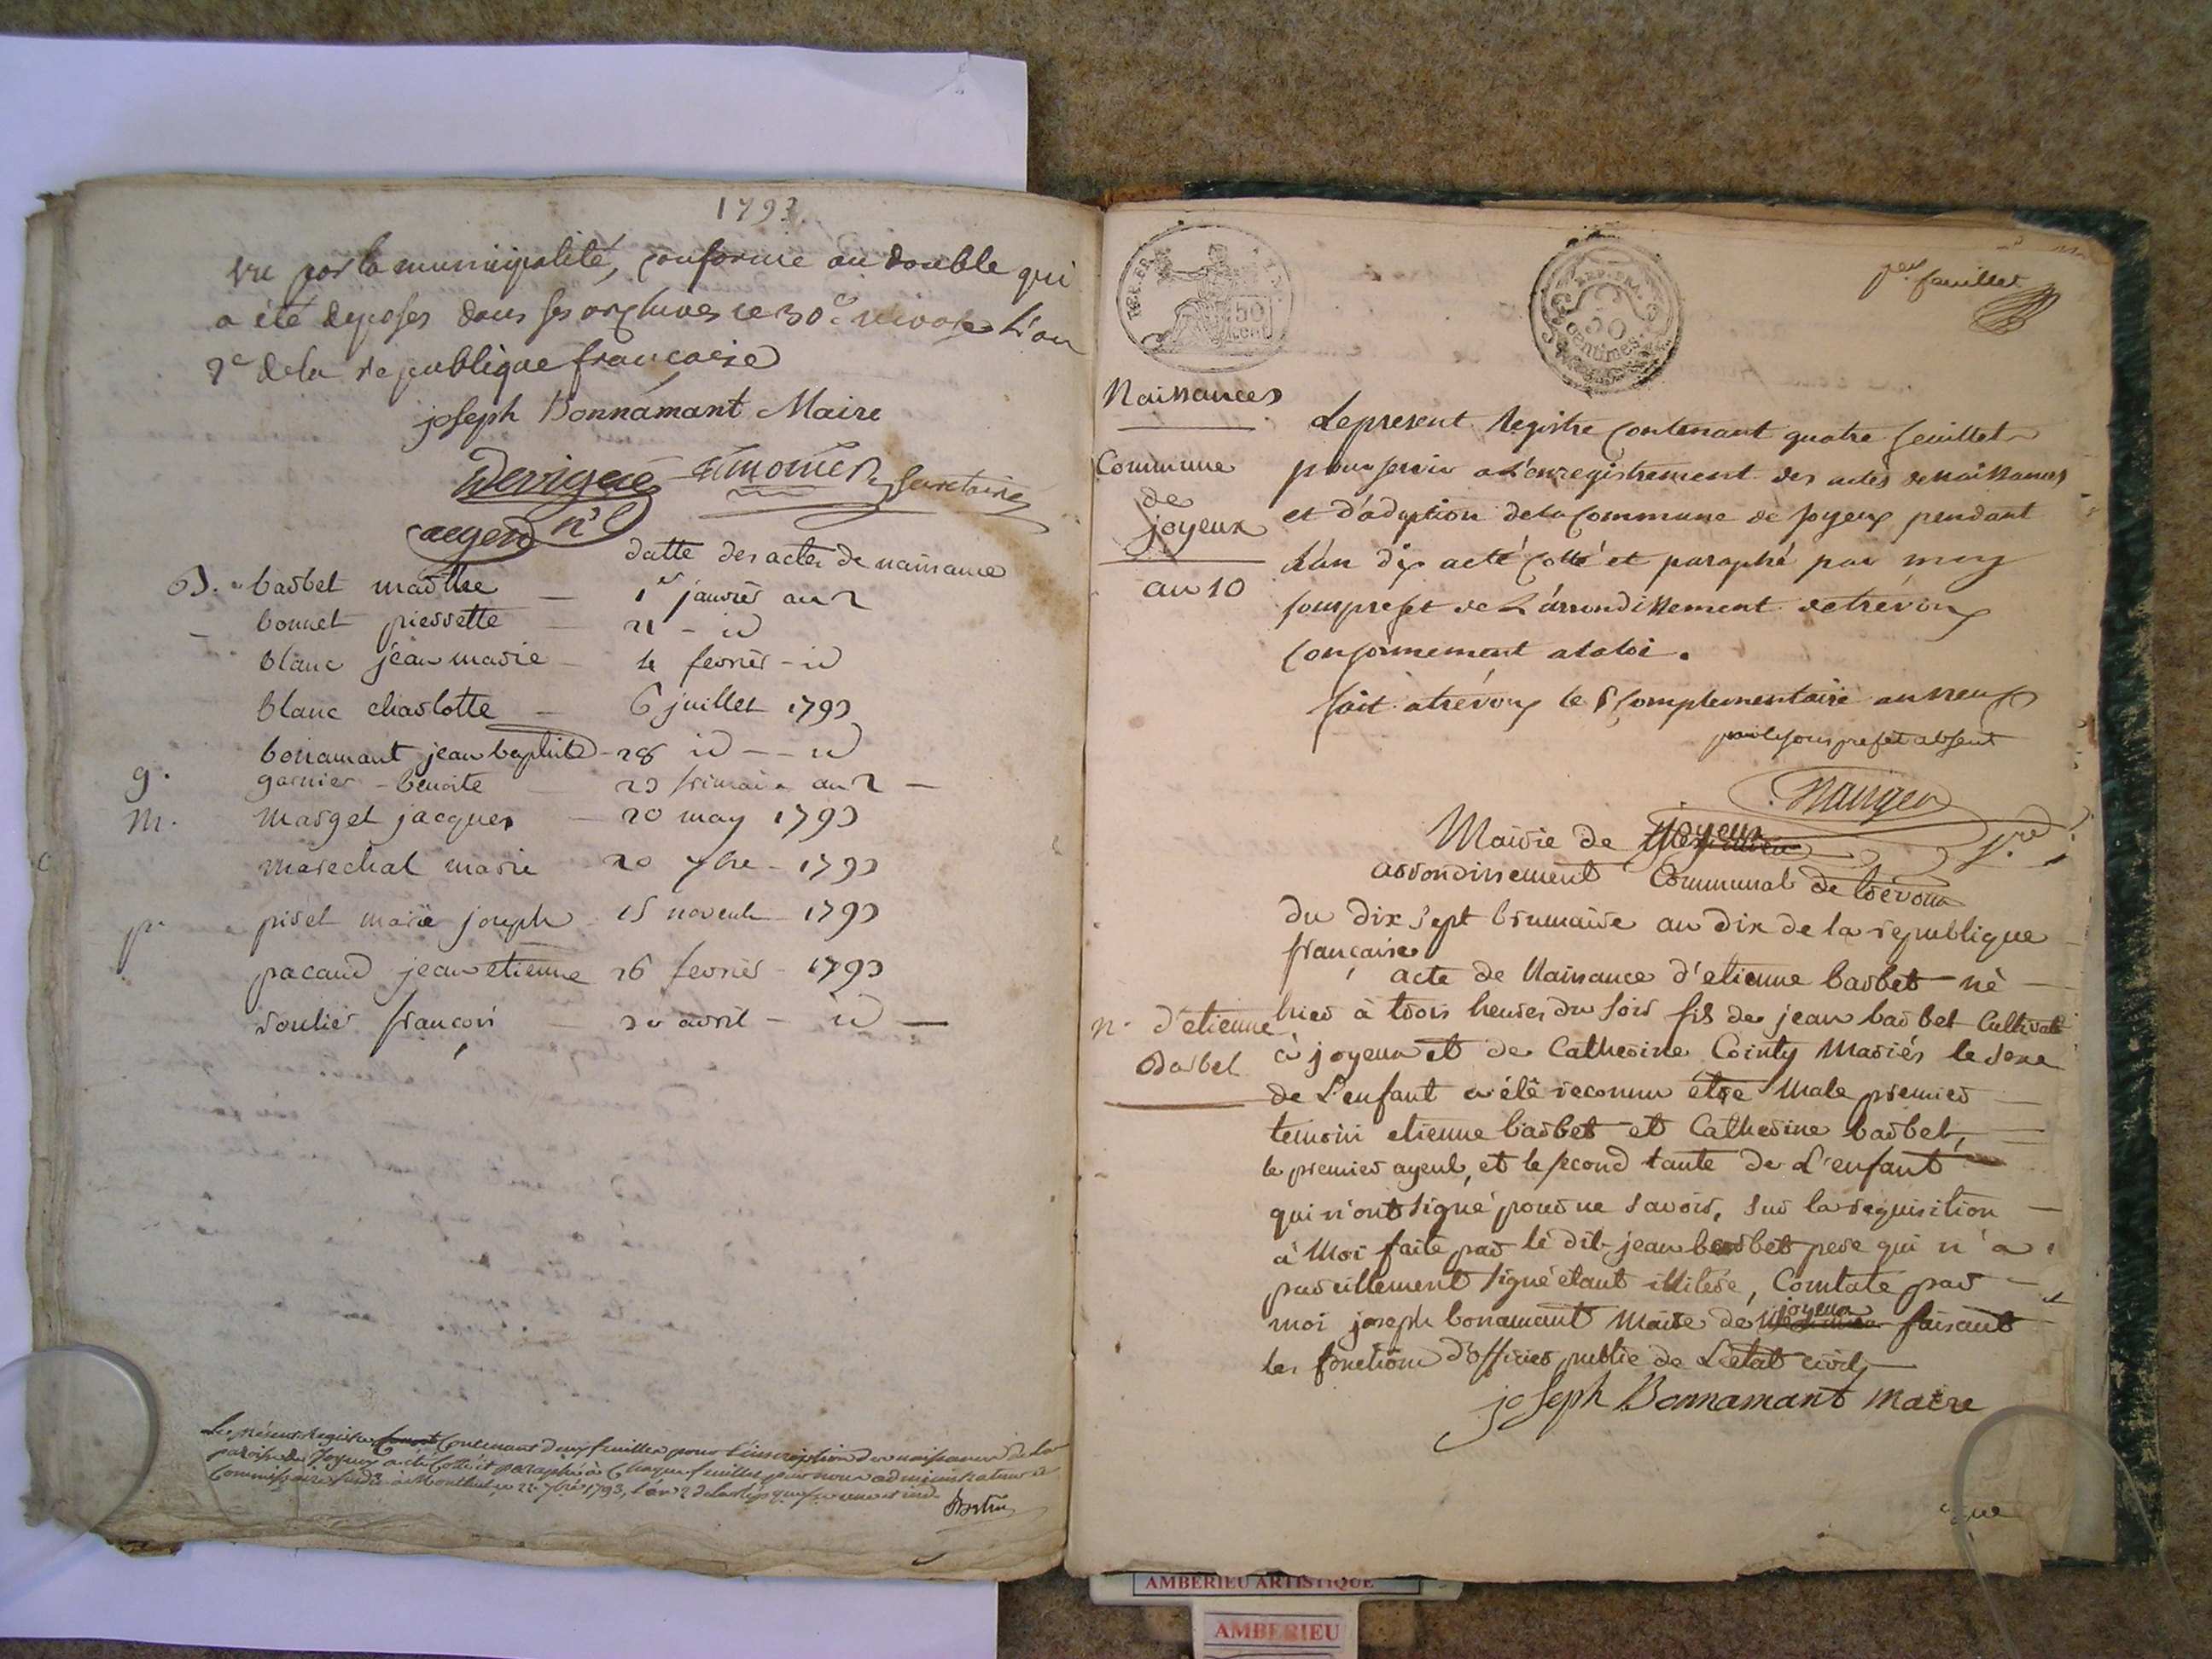 1793
vu par la municipalité, conforme au double qui
a été deposer dans ses archives ce 30e nivose L'an
2e de la republique francaise
joseph Bonnamant Maire
secretaire
datte des actes de naissance
B. barbet marthe — 1er janvier an 2
bonnet pierrette — 21 - id
blanc jean marie — 4 fevrier - id
blanc charlotte — 6 juillet 1793
bonamant jean baptiste - 28 id — id
g. garnier - benoite — 29 frimaire an 2 —
M. Marget jacques — 20 may 1793
Marechal marie 20 7bre - 1793
p. pivet marie joseph 15 novembre 1793
pacaud jean etienne 26 fevrier - 1793
roulier françois — avril - id —
Le présent Registre Contenant deux feuilles pour l'inscription des naissances de la
paroisse de Joyeux a été Cotté et paraphé à Chaque feuillet par nous administrateur
Commissaire à Montluel ce 22 7bre 1793, l'an 2 de la
REP. FRA.
50
cent
REP. FRA.
50
centimes
per feuillet
Naissances
Commune
de
joyeux
an 10
Le present Registre Contenant quatre feuillets
pour servir a L'enregistrement des actes de naissances
et d'adoption de la Commune de Joyeux pendant
L'an dix a eté Cotté et paraphé par moy
sousprefet de L'arrondissement de trevoux
Conformement a la loi.
fait a trévoux le 5 Complementaire an neuf
pour le sous prefet absent
Mairie de joyeux
arrondissement Communal de trevoux
du dix sept brumaire an dix de la republique
française
acte de Naissance d'etienne barbet né
n. d'etienne
Barbet
hier à trois heures du soir fils de jean barbet Cultivat
à joyeux et de Catherine Cointy Mariés le sexe
de L'enfant a été reconnu être Male premier
temoin etienne barbet et Catherine barbet,
le premier ayeul, et le second tante de L'enfant
qui n'ont signé pour ne savoir, sur la requisition
à Moi faite par le dit jean barbet pere qui n'a
pareillement signé etant illitere, Constaté par
moi joseph bonamant Maire de joyeux faisant
les fonctions d'officier public de L'etat civil
joseph Bonnamant maire
AMBERIEU ARTISTIQUE
AMBERIEU